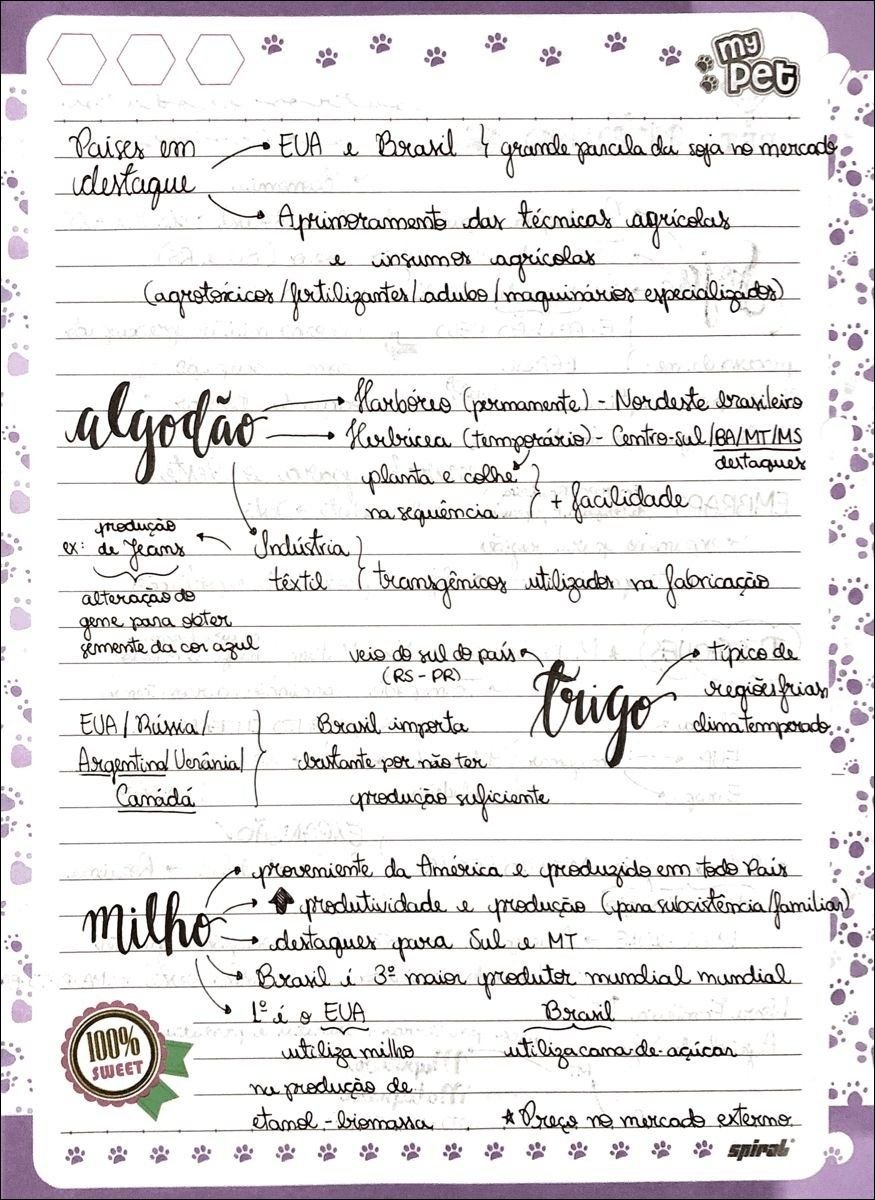 my
pet
Países em → EUA e Brasil } grande parcela da soja no mercado
destaque
Aprimoramento das técnicas agrícolas
e insumos agrícolas
(agrotóxicos/fertilizantes/adubo/maquinários especializados)
algodão
Harbóreo (permamente) - Nordeste brasileiro
Herbácea (temporário) - Centro-sul/BA/MT/MS
destaques
planta e colhe
na sequência } + facilidade
produção
ex: de Jeans ← Indústria
têxtil } transgênicos utilizados na fabricação
alteração do
gene para obter
semente da cor azul
veio do sul do país
(RS - PR)
trigo
típico de
regiões frias
clima temperado
EUA / Rússia /
Argentina/ Ucrânia/
Canádá
Brasil importa
bastante por não ter
produção suficiente
milho
proveniente da América e produzido em todo País
⬆ produtividade e produção (para subsistência/familiar)
destaques para Sul e MT
Brasil é 3º maior produtor mundial mundial
1º é o EUA Brasil
utiliza milho utiliza cana-de-açúcar
na produção de
etanol - biomassa ★ Preço no mercado externo
100%
SWEET
spiral